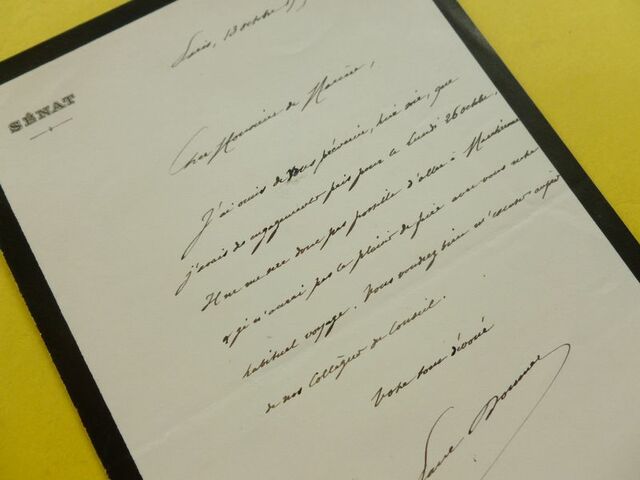 SÉNAT
Paris, 13 octobre
Cher Monsieur de Marcère,
J'ai omis de vous prévenir, hier soir, que
j'avais des engagements pris pour le Lundi 26 octobre.
Il ne me sera donc pas possible d'aller à
et je n'aurai pas le plaisir de faire avec vous notre
habituel voyage. Vous voudrez bien m'excuser auprès
de nos Collègues du Conseil.
Votre tout dévoué
Paul Doumer